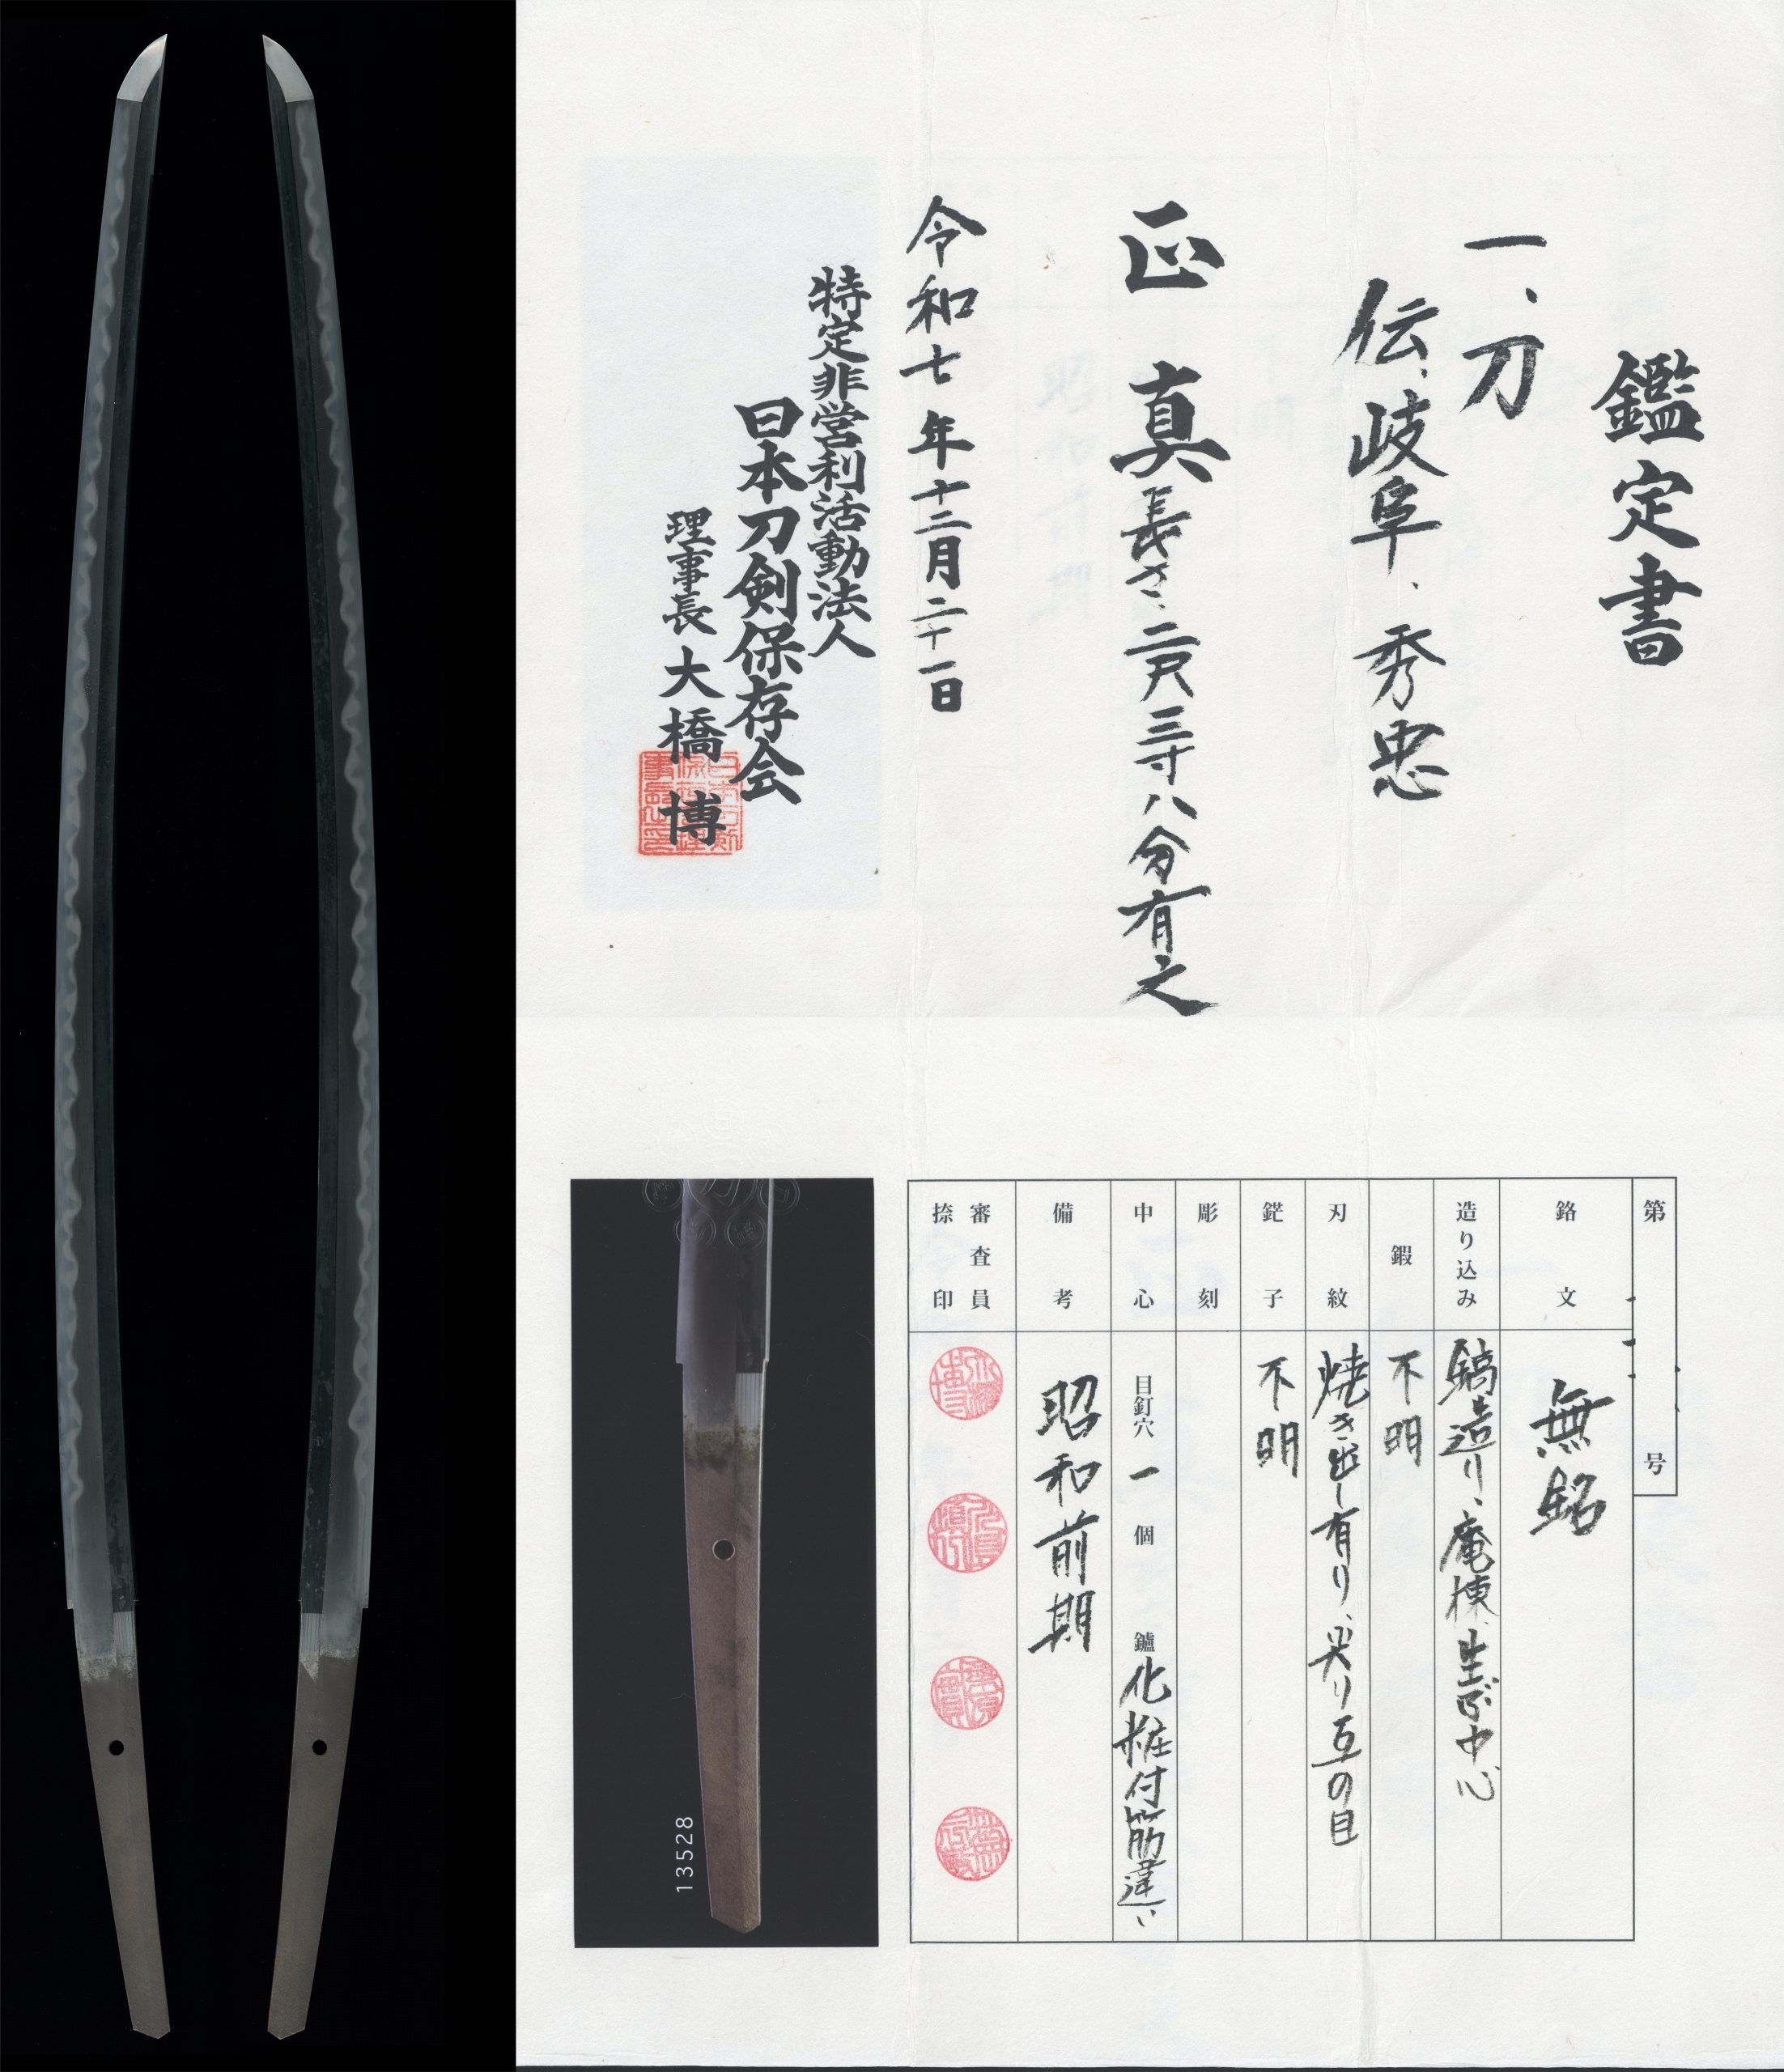 鑑定書
一、刀
伝、岐阜、秀忠
正真長さ、二尺三寸八分有之
令和七年十二月二十一日
特定非営利活動法人
日本刀剣保存会
理事長 大橋 博
第 号
銘文 無銘
造り込み 鎬造り、庵棟、生ぶ中心
鍜 不明
刃紋 焼き出し有り、尖り互の目
鋩子 不明
彫刻
中心 目釘穴 一 個 鑪 化粧付筋違い
備考 昭和前期
審査員
捺印
13528